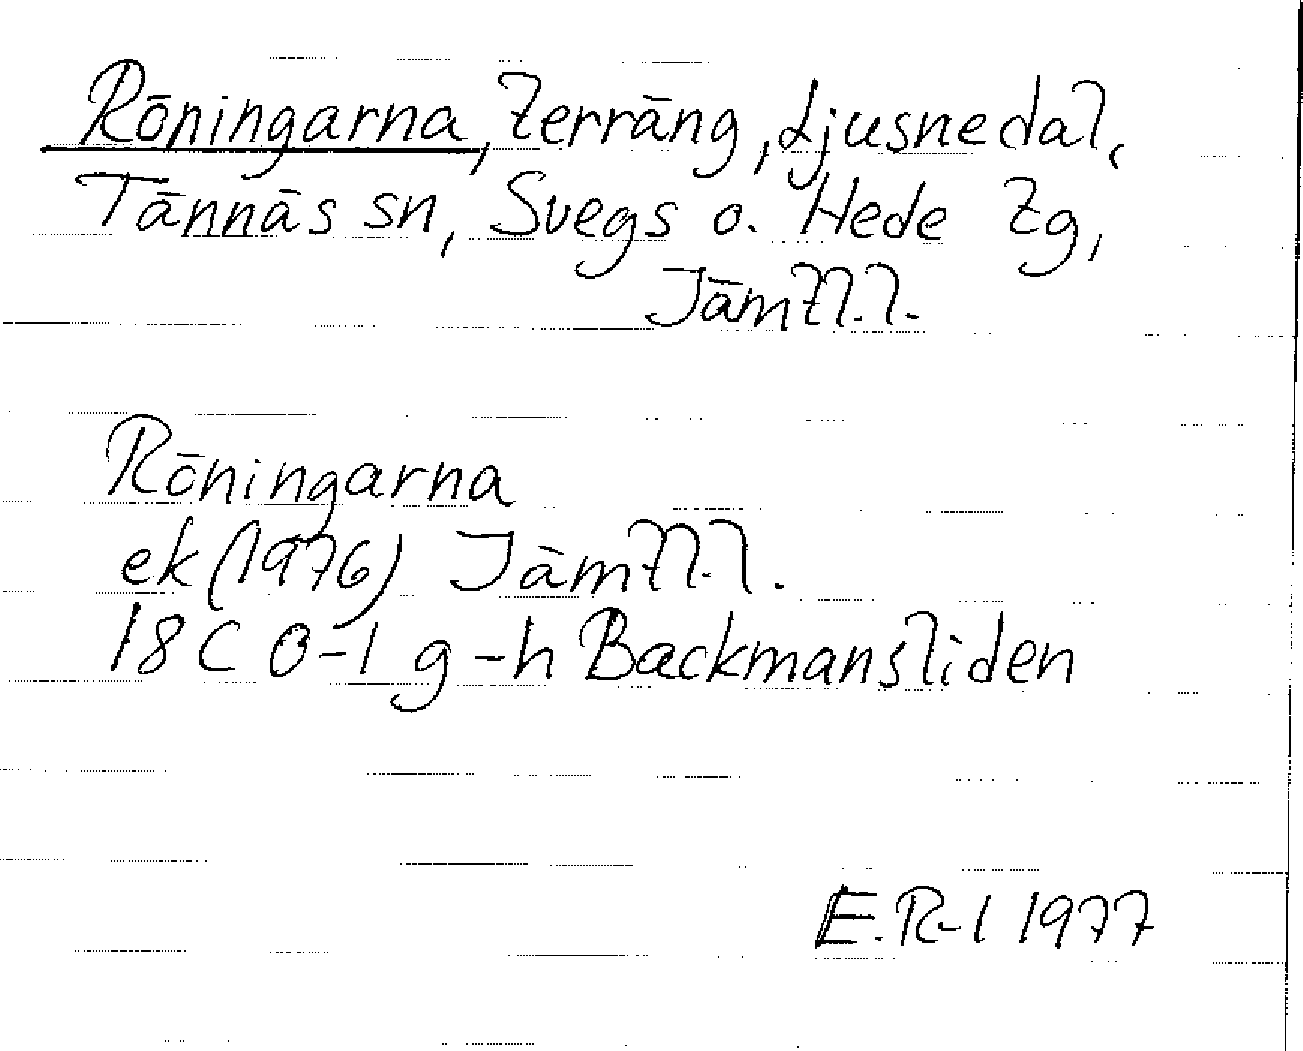 Röningarna, terräng, Ljusnedal,
Tännäs sn, Svegs o. Hede tg,
Jämtl.l.
Röningarna
ek (1976) Jämtl.l.
18 C 0-1 g-h Backmansliden
E.R-l 1977